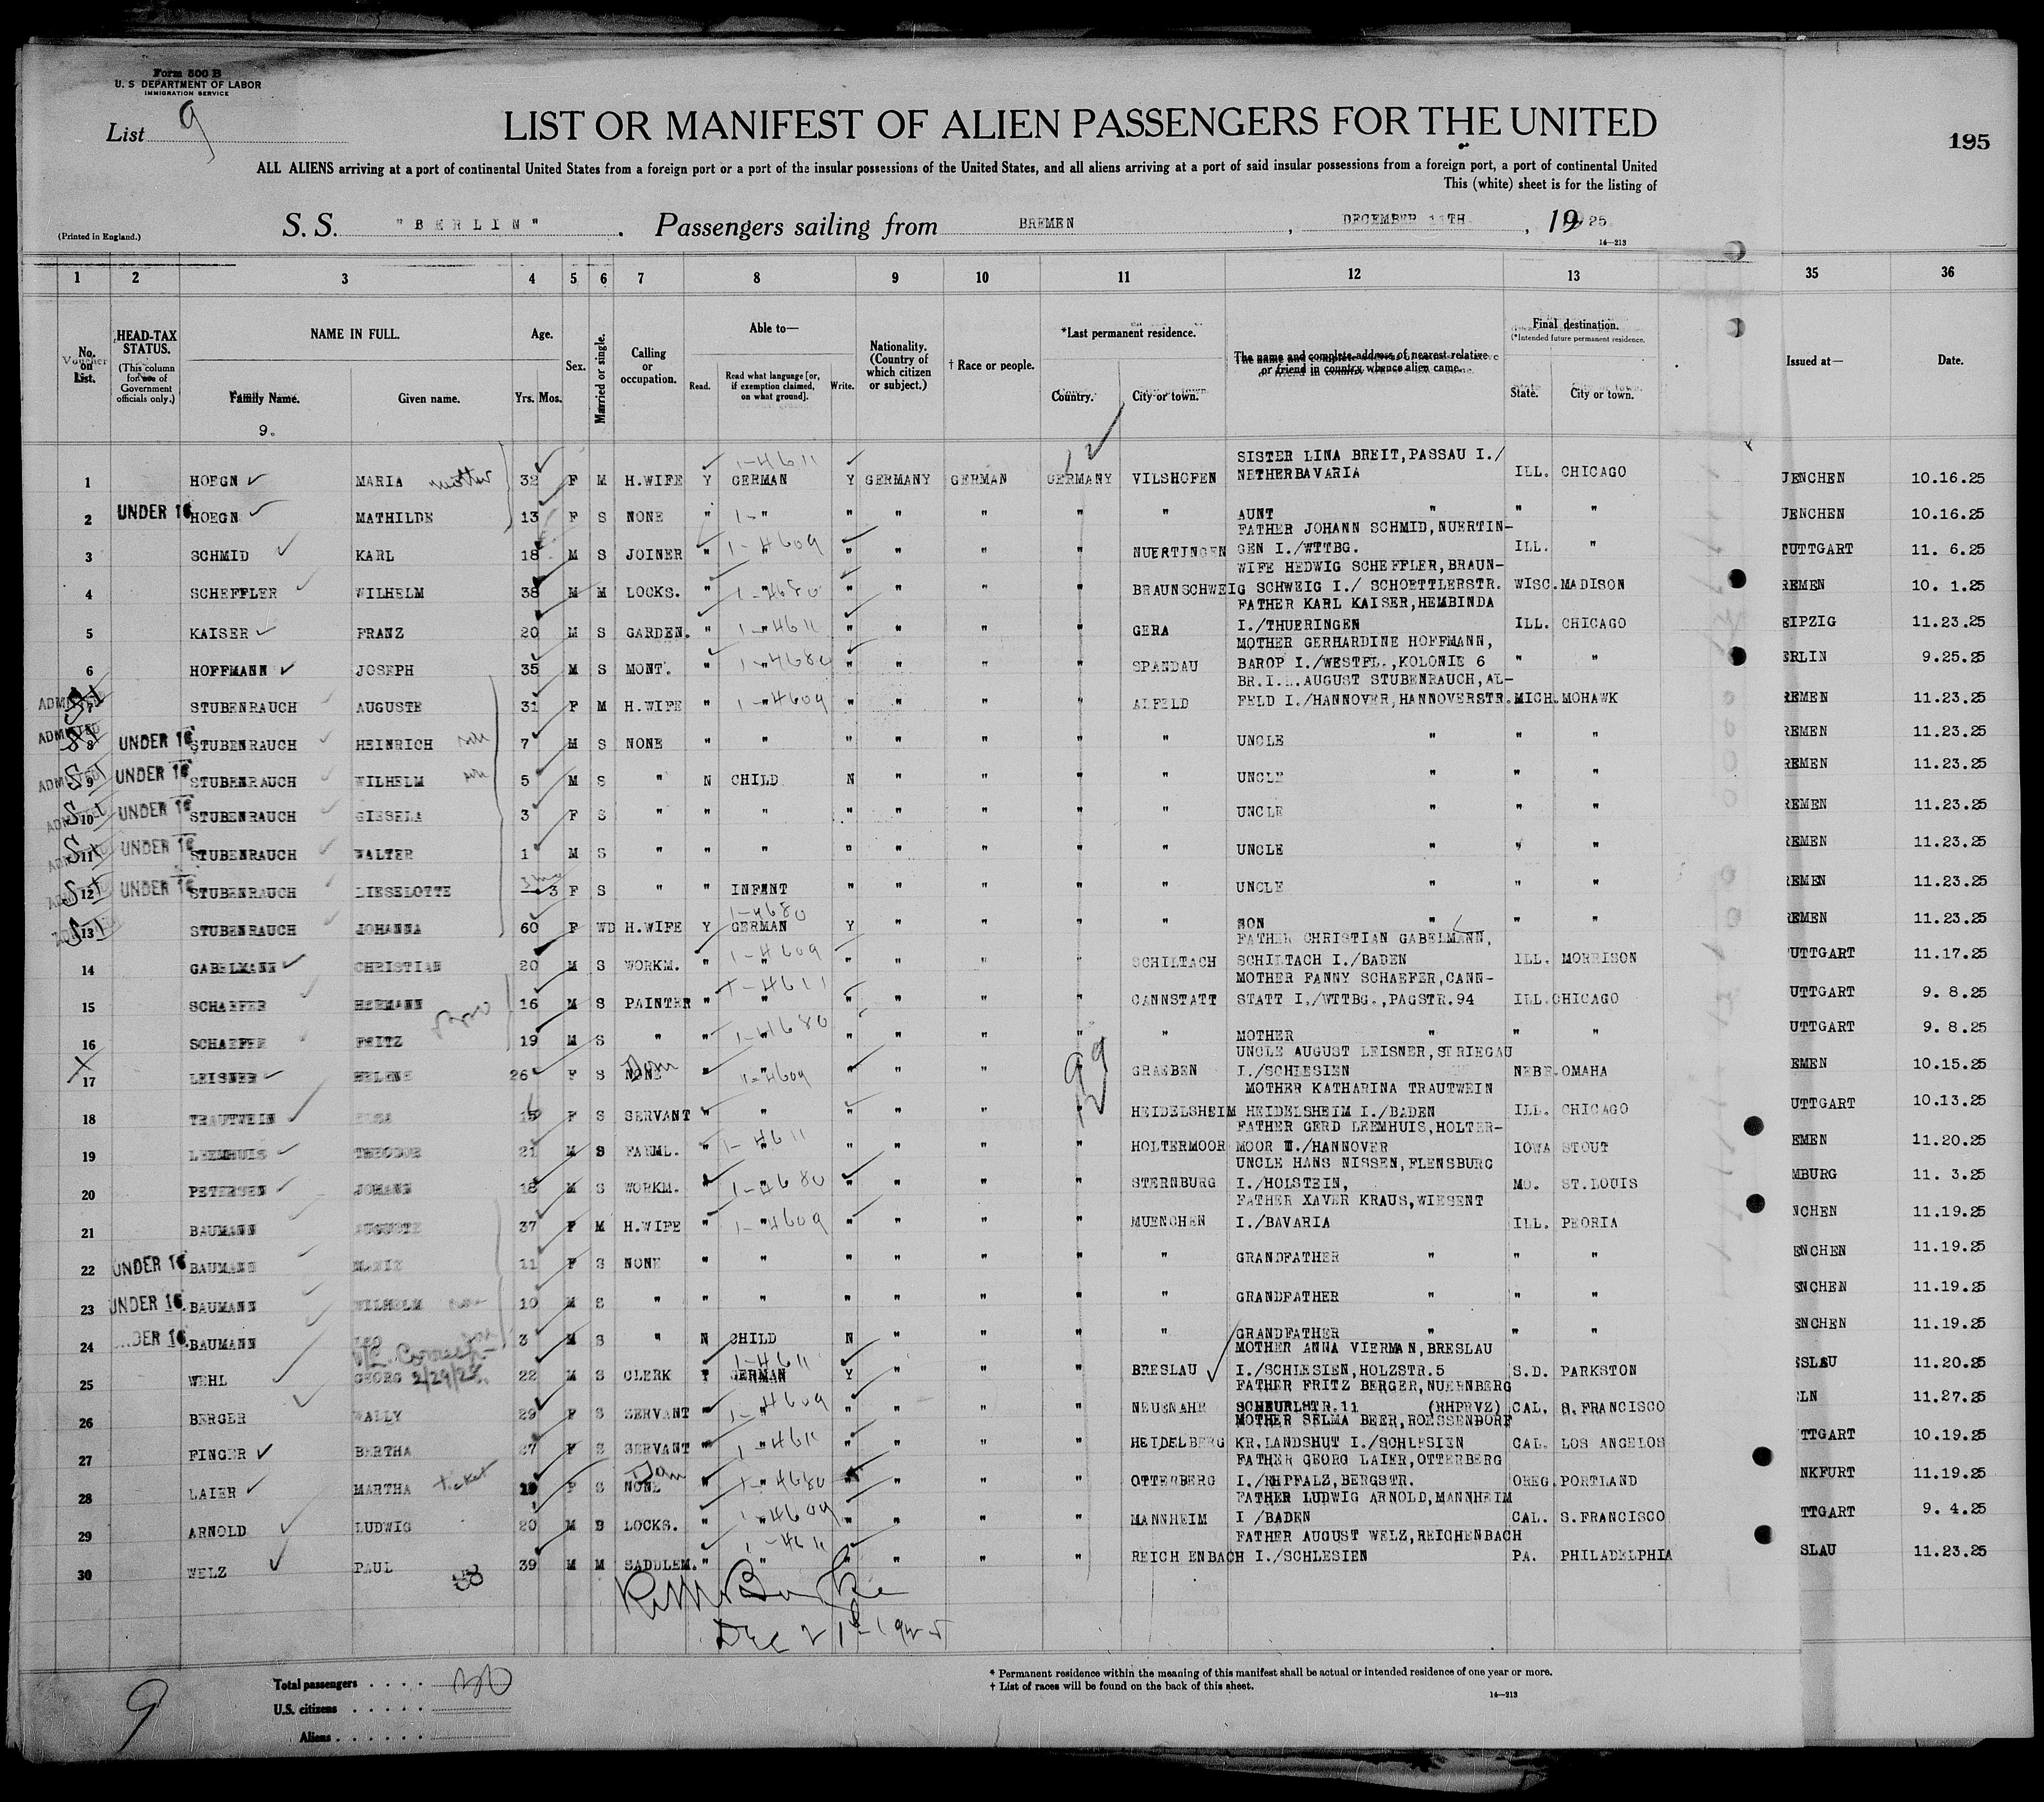 Form 500 B
U. S. DEPARTMENT OF LABOR
IMMIGRATION SERVICE
List 9
LIST OR MANIFEST OF ALIEN PASSENGERS FOR THE UNITED
195
ALL ALIENS arriving at a port of continental United States from a foreign port or a port of the insular possessions of the United States, and all aliens arriving at a port of said insular possessions from a foreign port, a port of continental United
This (white) sheet is for the listing of
(Printed in England.)
S. S. "BERLIN" . Passengers sailing from BREMEN , DECEMBER 11TH , 1925
14—213
1 2 3 4 5 6 7 8 9 10 11 12 13 35 36
No. on List. HEAD-TAX STATUS. (This column for use of Government officials only.) NAME IN FULL. Family Name. Given name. Age. Yrs. Mos. Sex. Married or single. Calling or occupation. Able to— Read. Read what language [or, if exemption claimed, on what ground]. Write. Nationality. (Country of which citizen or subject.) † Race or people. *Last permanent residence. Country. City or town. The name and complete address of nearest relative or friend in country whence alien came. Final destination. (*Intended future permanent residence. State. City or town. Issued at— Date.
9.
SISTER LINA BREIT, PASSAU I./
1 HOEGN MARIA mother 32 F M H.WIFE Y GERMAN 1-4611 Y GERMANY GERMAN GERMANY VILSHOFEN NETHERBAVARIA ILL. CHICAGO UENCHEN 10.16.25
2 UNDER 16 HOEGN MATHILDE 13 F S NONE " " " " " " " AUNT " " " UENCHEN 10.16.25
FATHER JOHANN SCHMID, NUERTIN-
3 SCHMID KARL 18 M S JOINER " 1-4609 " " " " " NUERTINGEN GEN I./WTTBG. ILL. " TUTTGART 11. 6.25
WIFE HEDWIG SCHEFFLER, BRAUN-
4 SCHEFFLER WILHELM 38 M M LOCKS. " 1-4680 " " " " " BRAUNSCHWEIG SCHWEIG I./ SCHOETTLERSTR. WISC. MADISON REMEN 10. 1.25
FATHER KARL KAISER, HEMBINDA
5 KAISER FRANZ 20 M S GARDEN. " 1-4611 " " " " " GERA I./THUERINGEN ILL. CHICAGO EIPZIG 11.23.25
MOTHER GERHARDINE HOFFMANN,
6 HOFFMANN JOSEPH 35 M S MONT. " 1-4680 " " " " " SPANDAU BAROP I./WESTFL., KOLONIE 6 " " ERLIN 9.25.25
BR.I.L. AUGUST STUBENRAUCH, AL-
ADMITTED 7 STUBENRAUCH AUGUSTE 31 F M H.WIFE " 1-4609 " " " " " ALFELD FELD I./HANNOVER, HANNOVERSTR. MICH. MOHAWK REMEN 11.23.25
ADMITTED 8 UNDER 16 STUBENRAUCH HEINRICH son 7 M S NONE " " " " " " " UNCLE " " " REMEN 11.23.25
ADMITTED 9 UNDER 16 STUBENRAUCH WILHELM son 5 M S " N CHILD N " " " " UNCLE " " REMEN 11.23.25
ADMITTED 10 UNDER 16 STUBENRAUCH GISELA 3 F S " " " " " " " " UNCLE " " " REMEN 11.23.25
ADMITTED 11 UNDER 16 STUBENRAUCH WALTER 1 M S " " " " " " " " UNCLE " " " REMEN 11.23.25
ADMITTED 12 UNDER 16 STUBENRAUCH LIESELOTTE 3 F S " " INFANT " " " " " UNCLE " " " REMEN 11.23.25
13 STUBENRAUCH JOHANNA 60 F WD H.WIFE Y GERMAN 1-4680 Y " " " " SON " " " REMEN 11.23.25
FATHER CHRISTIAN GABELMANN,
14 GABELMANN CHRISTIAN 20 M S WORKM. " 1-4609 " " " " " SCHILTACH SCHILTACH I./BADEN ILL. MORRISON UTTGART 11.17.25
MOTHER FANNY SCHAEFER, CANN-
15 SCHAEFER HERMANN 16 M S PAINTER " 1-4611 " " " " " CANNSTATT STATT I./WTTBG., PAGSTR.94 ILL. CHICAGO UTTGART 9. 8.25
16 SCHAEFER FRITZ 19 M S " " 1-4680 " " " " " MOTHER " " " UTTGART 9. 8.25
UNCLE AUGUST LEISNER, STRIEGAU
17 LEISNER HELENE 26 F S NONE Dom " 1-4609 " " " " GRAEBEN I./SCHLESIEN NEBR. OMAHA EMEN 10.15.25
MOTHER KATHARINA TRAUTWEIN
18 TRAUTWEIN F S SERVANT " " " " " " HEIDELSHEIM HEIDELSHEIM I./BADEN ILL. CHICAGO UTTGART 10.13.25
FATHER GERD LEEMHUIS, HOLTER-
19 LEEMHUIS THEODOR 21 M S FARML. " 1-4611 " " " " HOLTERMOOR MOOR I./HANNOVER IOWA STOUT EMEN 11.20.25
UNCLE HANS NISSEN, FLENSBURG
20 PETERSEN JOHANN 18 M S WORKM. " 1-4680 " " " " STERNBURG I./HOLSTEIN, MO. ST.LOUIS MBURG 11. 3.25
FATHER XAVER KRAUS, WIESENT
21 BAUMANN AUGUSTE 37 F M H.WIFE " 1-4609 " " " " MUENCHEN I./BAVARIA ILL. PEORIA NCHEN 11.19.25
22 UNDER 16 BAUMANN 11 F S NONE " " " " " " " GRANDFATHER " " " ENCHEN 11.19.25
23 UNDER 16 BAUMANN WILHELM 10 M S " " " " " " " GRANDFATHER " " " ENCHEN 11.19.25
24 UNDER 16 BAUMANN LEO 3 M S " N CHILD N " " " " GRANDFATHER " " " ENCHEN 11.19.25
MOTHER ANNA VIERMAN, BRESLAU
25 WEHL GEORG 22 M S CLERK Y GERMAN 1-4611 Y " " " BRESLAU I./SCHLESIEN, HOLZSTR.5 S.D. PARKSTON SLAU 11.20.25
FATHER FRITZ BERGER, NUERNBERG
26 BERGER WALLY 29 F S SERVANT " 1-4609 " " " " NEUENAHR SCHEURLSTR.11 (RHPRVZ) CAL. S.FRANCISCO LN 11.27.25
MOTHER SELMA BEER, ROESSENDORF
27 FINGER BERTHA 27 F S SERVANT " 1-4611 " " " " HEIDELBERG KR.LANDSHUT I./SCHLESIEN CAL. LOS ANGELOS TTGART 10.19.25
FATHER GEORG LAIER, OTTERBERG
28 LAIER MARTHA ticket F S NONE Dom " 1-4680 " " " " OTTERBERG I./RHPFALZ, BERGSTR. OREG. PORTLAND NKFURT 11.19.25
FATHER LUDWIG ARNOLD, MANNHEIM
29 ARNOLD LUDWIG 20 M S LOCKS. " 1-4609 " " " " MANNHEIM I /BADEN CAL. S.FRANCISCO TTGART 9. 4.25
FATHER AUGUST WELZ, REICHENBACH
30 WELZ PAUL 39 M M SADDLEM. " 1-4611 " " " " REICHENBACH I./SCHLESIEN PA. PHILADELPHIA SLAU 11.23.25
Dec 21st 1925
9
Total passengers . . . . 30
U.S. citizens . . . . .
Aliens . . . . . .
* Permanent residence within the meaning of this manifest shall be actual or intended residence of one year or more.
† List of races will be found on the back of this sheet.
14—213